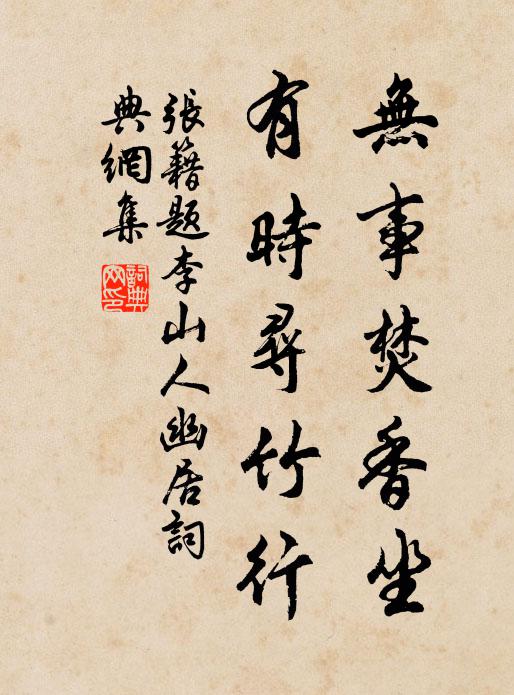 無事焚香坐
有時尋竹行
張籍題李山人幽居詞
典網集
詞典網印